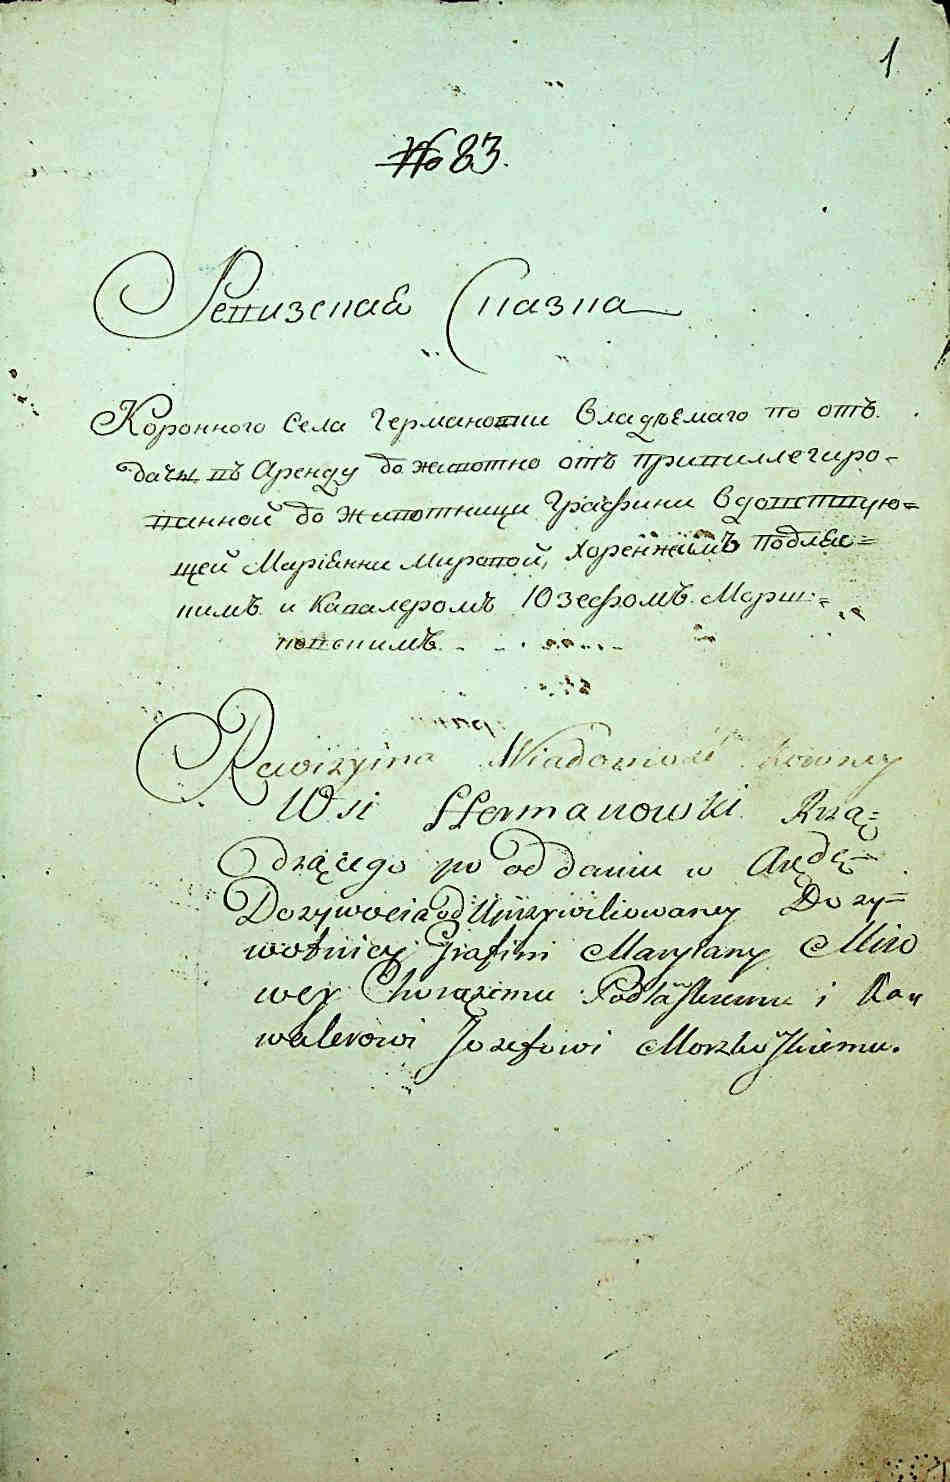 1
№ 83.
Ревизская Сказка
Коронного села Германовки владѣемаго по отъ
дачи въ Аренду до животно отъ привиллегиро-
ванной до животницы Графини вдовствую=
щей Маріянни Мировой, Хоренжимъ Подляс=
кимъ и Кавалеромъ Юзефомъ Морш=
ковскимъ
Rewizyina Wiadomość
Wsi Hermanowki Rzą=
dzącego po oddaniu w Arędę
Dozywocia od Uprzywiliowaney Dozy=
wotnicy Grafini Maryiany Miro
wey Chorązemu Podlaskiemu i Ka„
walerowi Jozefowi Morzkowskiemu.